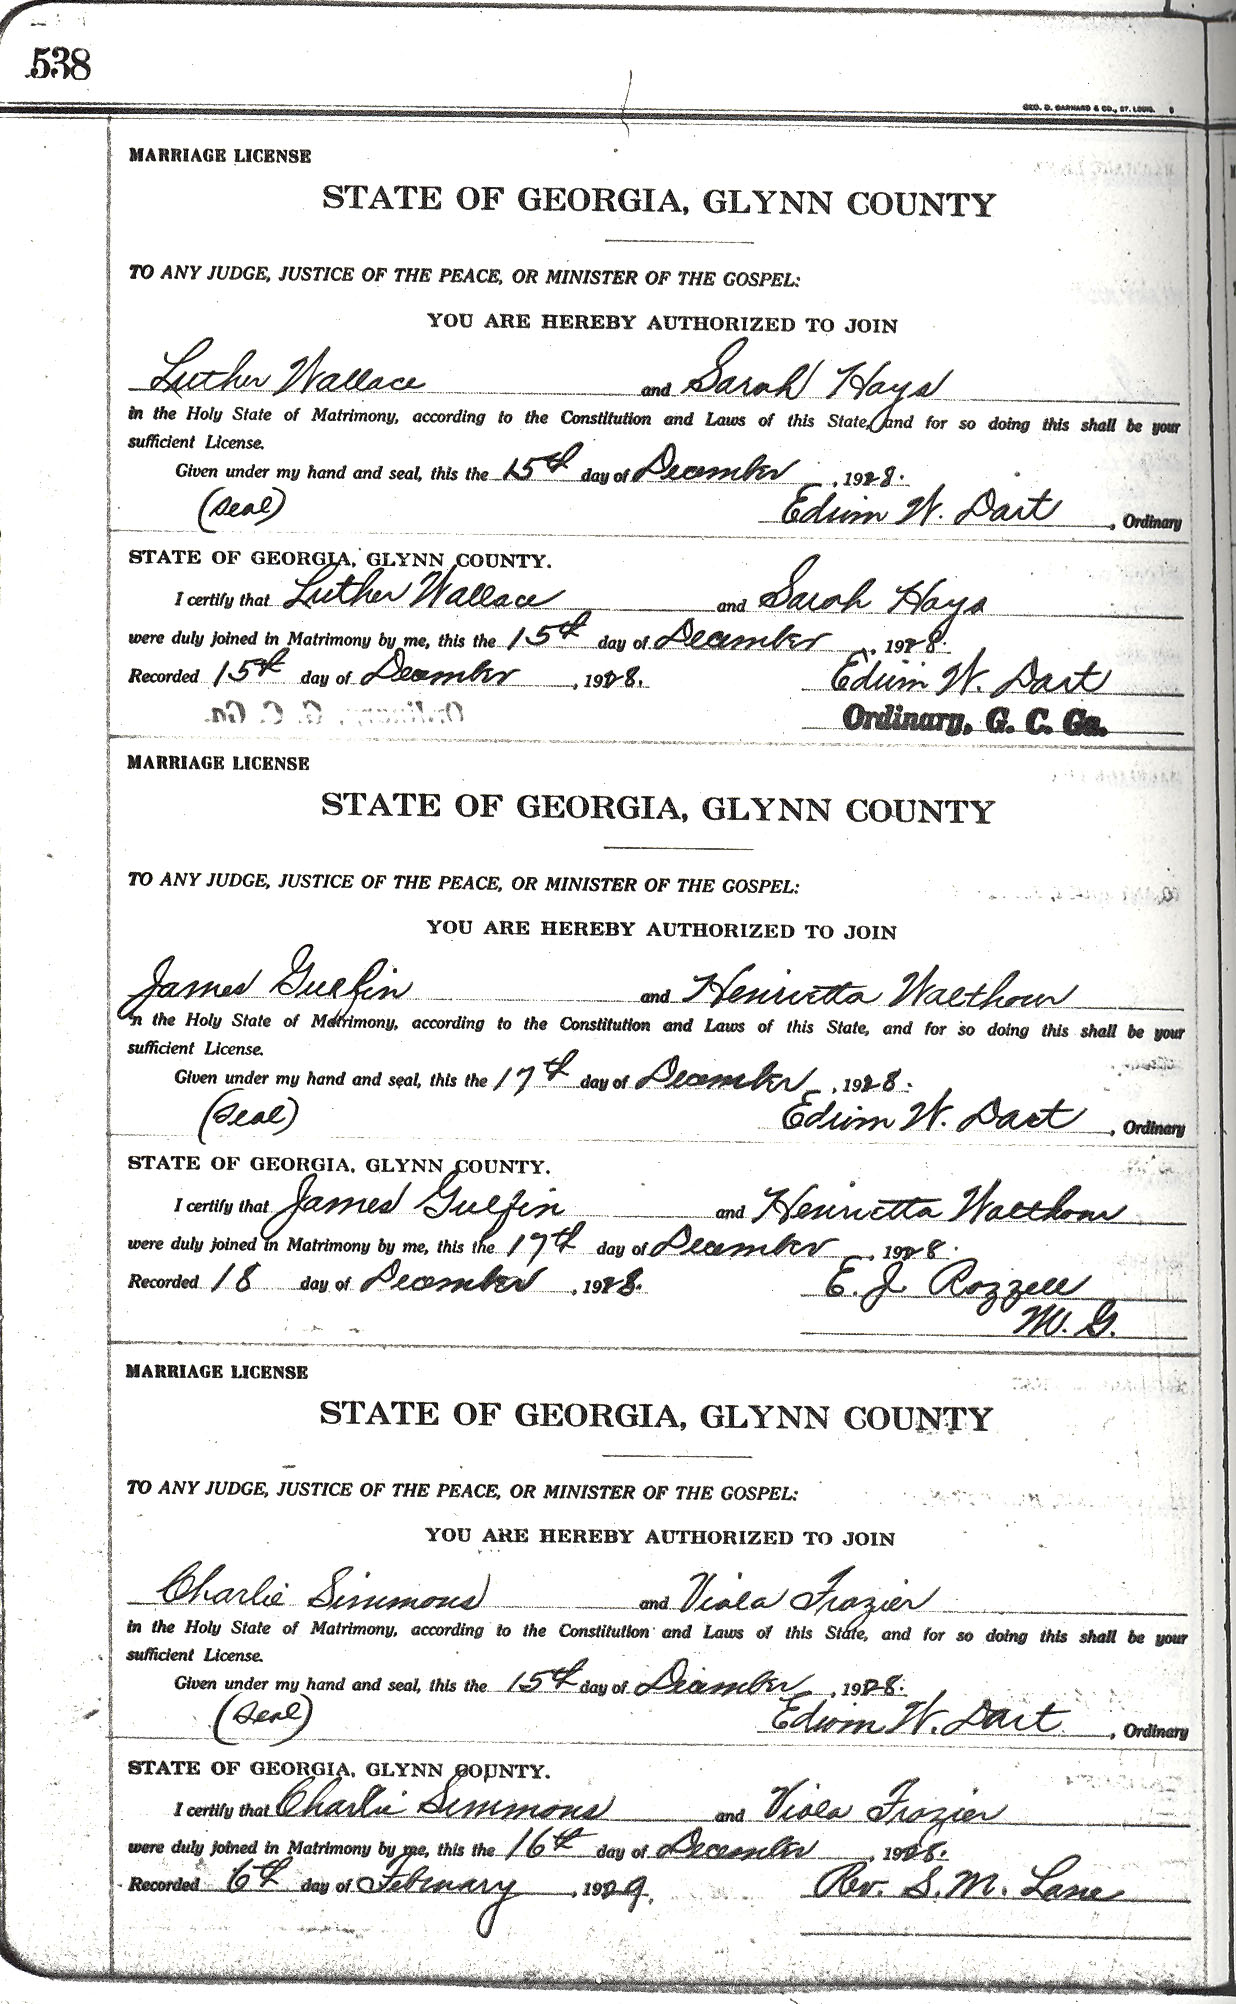 538
GEO. D. BARNARD & CO., ST. LOUIS.
MARRIAGE LICENSE
STATE OF GEORGIA, GLYNN COUNTY
TO ANY JUDGE, JUSTICE OF THE PEACE, OR MINISTER OF THE GOSPEL:
YOU ARE HEREBY AUTHORIZED TO JOIN
Luther Wallace and Sarah Hays
in the Holy State of Matrimony, according to the Constitution and Laws of this State, and for so doing this shall be your
sufficient License.
Given under my hand and seal, this the 15th day of December, 1928.
(Seal) Edwin W. Dart, Ordinary
STATE OF GEORGIA, GLYNN COUNTY.
I certify that Luther Wallace and Sarah Hays
were duly joined in Matrimony by me, this the 15th day of December, 1928.
Recorded 15th day of December, 1928. Edwin W. Dart
Ordinary, G. C. Ga.
MARRIAGE LICENSE
STATE OF GEORGIA, GLYNN COUNTY
TO ANY JUDGE, JUSTICE OF THE PEACE, OR MINISTER OF THE GOSPEL:
YOU ARE HEREBY AUTHORIZED TO JOIN
James and Henrietta Walthour
in the Holy State of Matrimony, according to the Constitution and Laws of this State, and for so doing this shall be your
sufficient License.
Given under my hand and seal, this the 17th day of December, 1928.
(Seal) Edwin W. Dart, Ordinary
STATE OF GEORGIA, GLYNN COUNTY.
I certify that James and Henrietta Walthour
were duly joined in Matrimony by me, this the 17th day of December, 1928.
Recorded 18 day of December, 1928. E. J. Rozzell
M. G.
MARRIAGE LICENSE
STATE OF GEORGIA, GLYNN COUNTY
TO ANY JUDGE, JUSTICE OF THE PEACE, OR MINISTER OF THE GOSPEL:
YOU ARE HEREBY AUTHORIZED TO JOIN
Charlie Simmons and Viola Frazier
in the Holy State of Matrimony, according to the Constitution and Laws of this State, and for so doing this shall be your
sufficient License.
Given under my hand and seal, this the 15th day of December, 1928.
(Seal) Edwin W. Dart, Ordinary
STATE OF GEORGIA, GLYNN COUNTY.
I certify that Charlie Simmons and Viola Frazier
were duly joined in Matrimony by me, this the 16th day of December, 1928.
Recorded 6th day of February, 1929. Rev. S. M. Lane